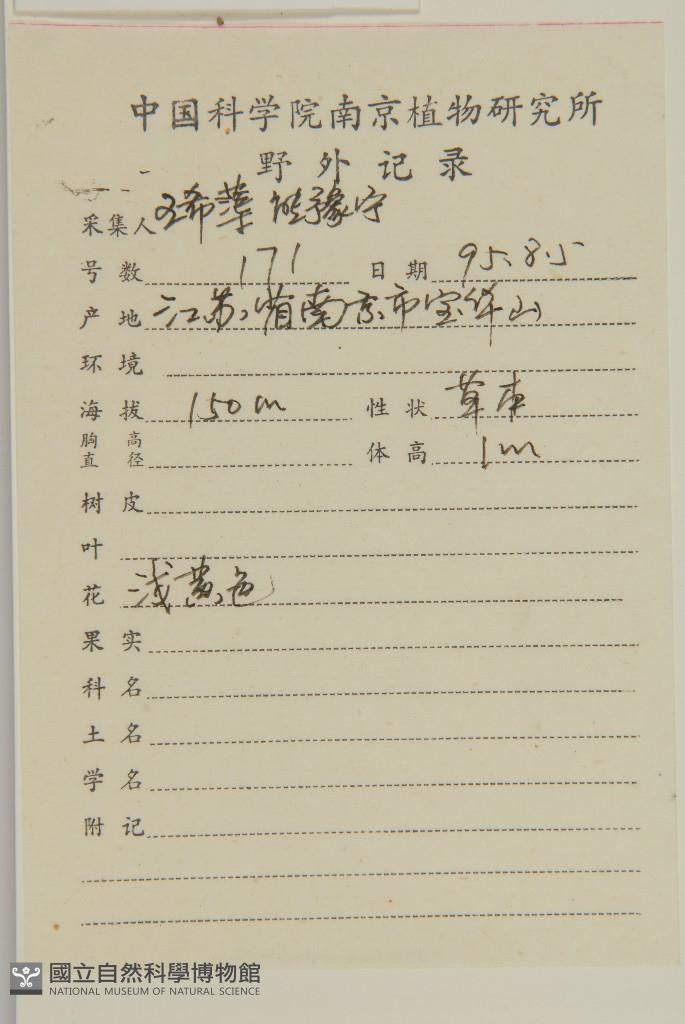 中国科学院南京植物研究所
野外记录
采集人 王希蕖 熊豫宁
号数 171 日期 95.8.5
产地 江苏省南京市宝华山
环境
海拔 150m 性状 草本
胸高直径 体高 1m
树皮
叶
花 浅黄色
果实
科名
土名
学名
附记
國立自然科學博物館
NATIONAL MUSEUM OF NATURAL SCIENCE